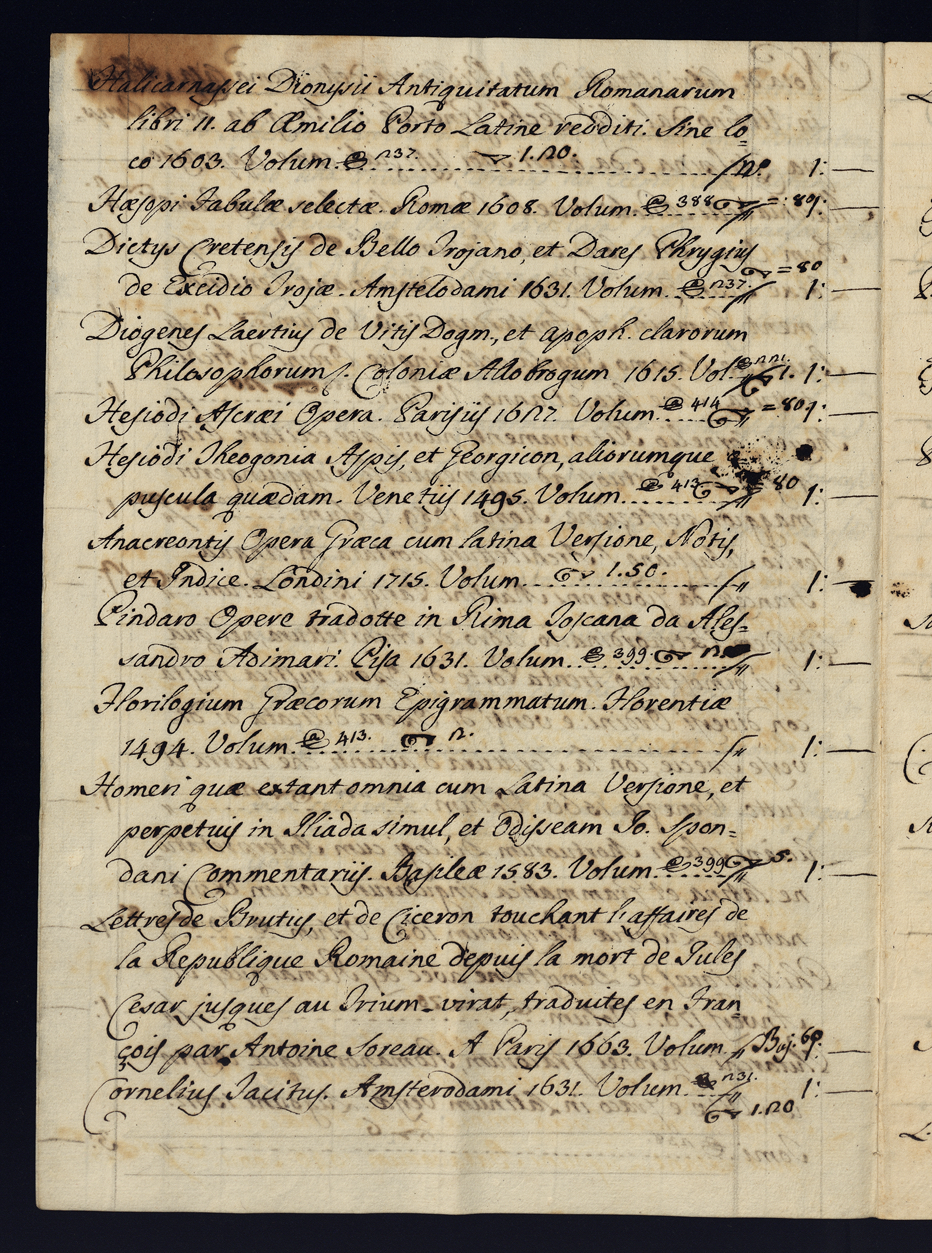 Halicarnassei Dionysii Antiquitatum Romanarum
libri 11. ab Æmilio Porto Latine redditi. Sine lo=
co 1603. Volum. 1.20. 1:
Hæsopi Fabulæ selectæ. Romæ 1608. Volum. 388 =: 80 1:
Dictys Cretensis de Bello Trojano, et Dares Phrygius
=80
de Excidio Trojæ. Amstelodami 1631. Volum. 237. 1:
Diogenes Laertius de Vitis Dogm., et apoph. clarorum
Philosophorum. Coloniæ Allobrogum 1615. Vol. 221. 1. 1:
Hesiodi Ascræi Opera. Parisiis 1627. Volum. 414 =80 1:
Hesiodi Theogonia Aspis, et Georgicon, aliorumque
puscula quædam. Venetiis 1495. Volum. 413 =80 1:
Anacreontis Opera Græca cum latina Versione, Notis,
et Indice. Londini 1715. Volum. 1.50. 1:
Pindaro Opere tradotte in Rima Toscana da Ales=
sandro Adimari. Pisa 1631. Volum. 399. 1:
Florilogium Græcorum Epigrammatum. Florentiæ
1494. Volum. 413. 2. 1:
Homeri quæ extant omnia cum Latina Versione, et
perpetuis in Iliada simul, et Odisseam Jo. Spon=
dani Commentariis. Basileæ 1583. Volum. 399 5. 1:
Lettres de Brutus, et de Ciceron touchant l'affaires de
la Republique Romaine depuis la mort de Jules
Cesar jusques au Trium-virat, traduites en Fran
çois par Antoine Soreau. A Paris 1663. Volum. 1:
Cornelius Tacitus. Amsterodami 1631. Volum. 231. 1:
1.20